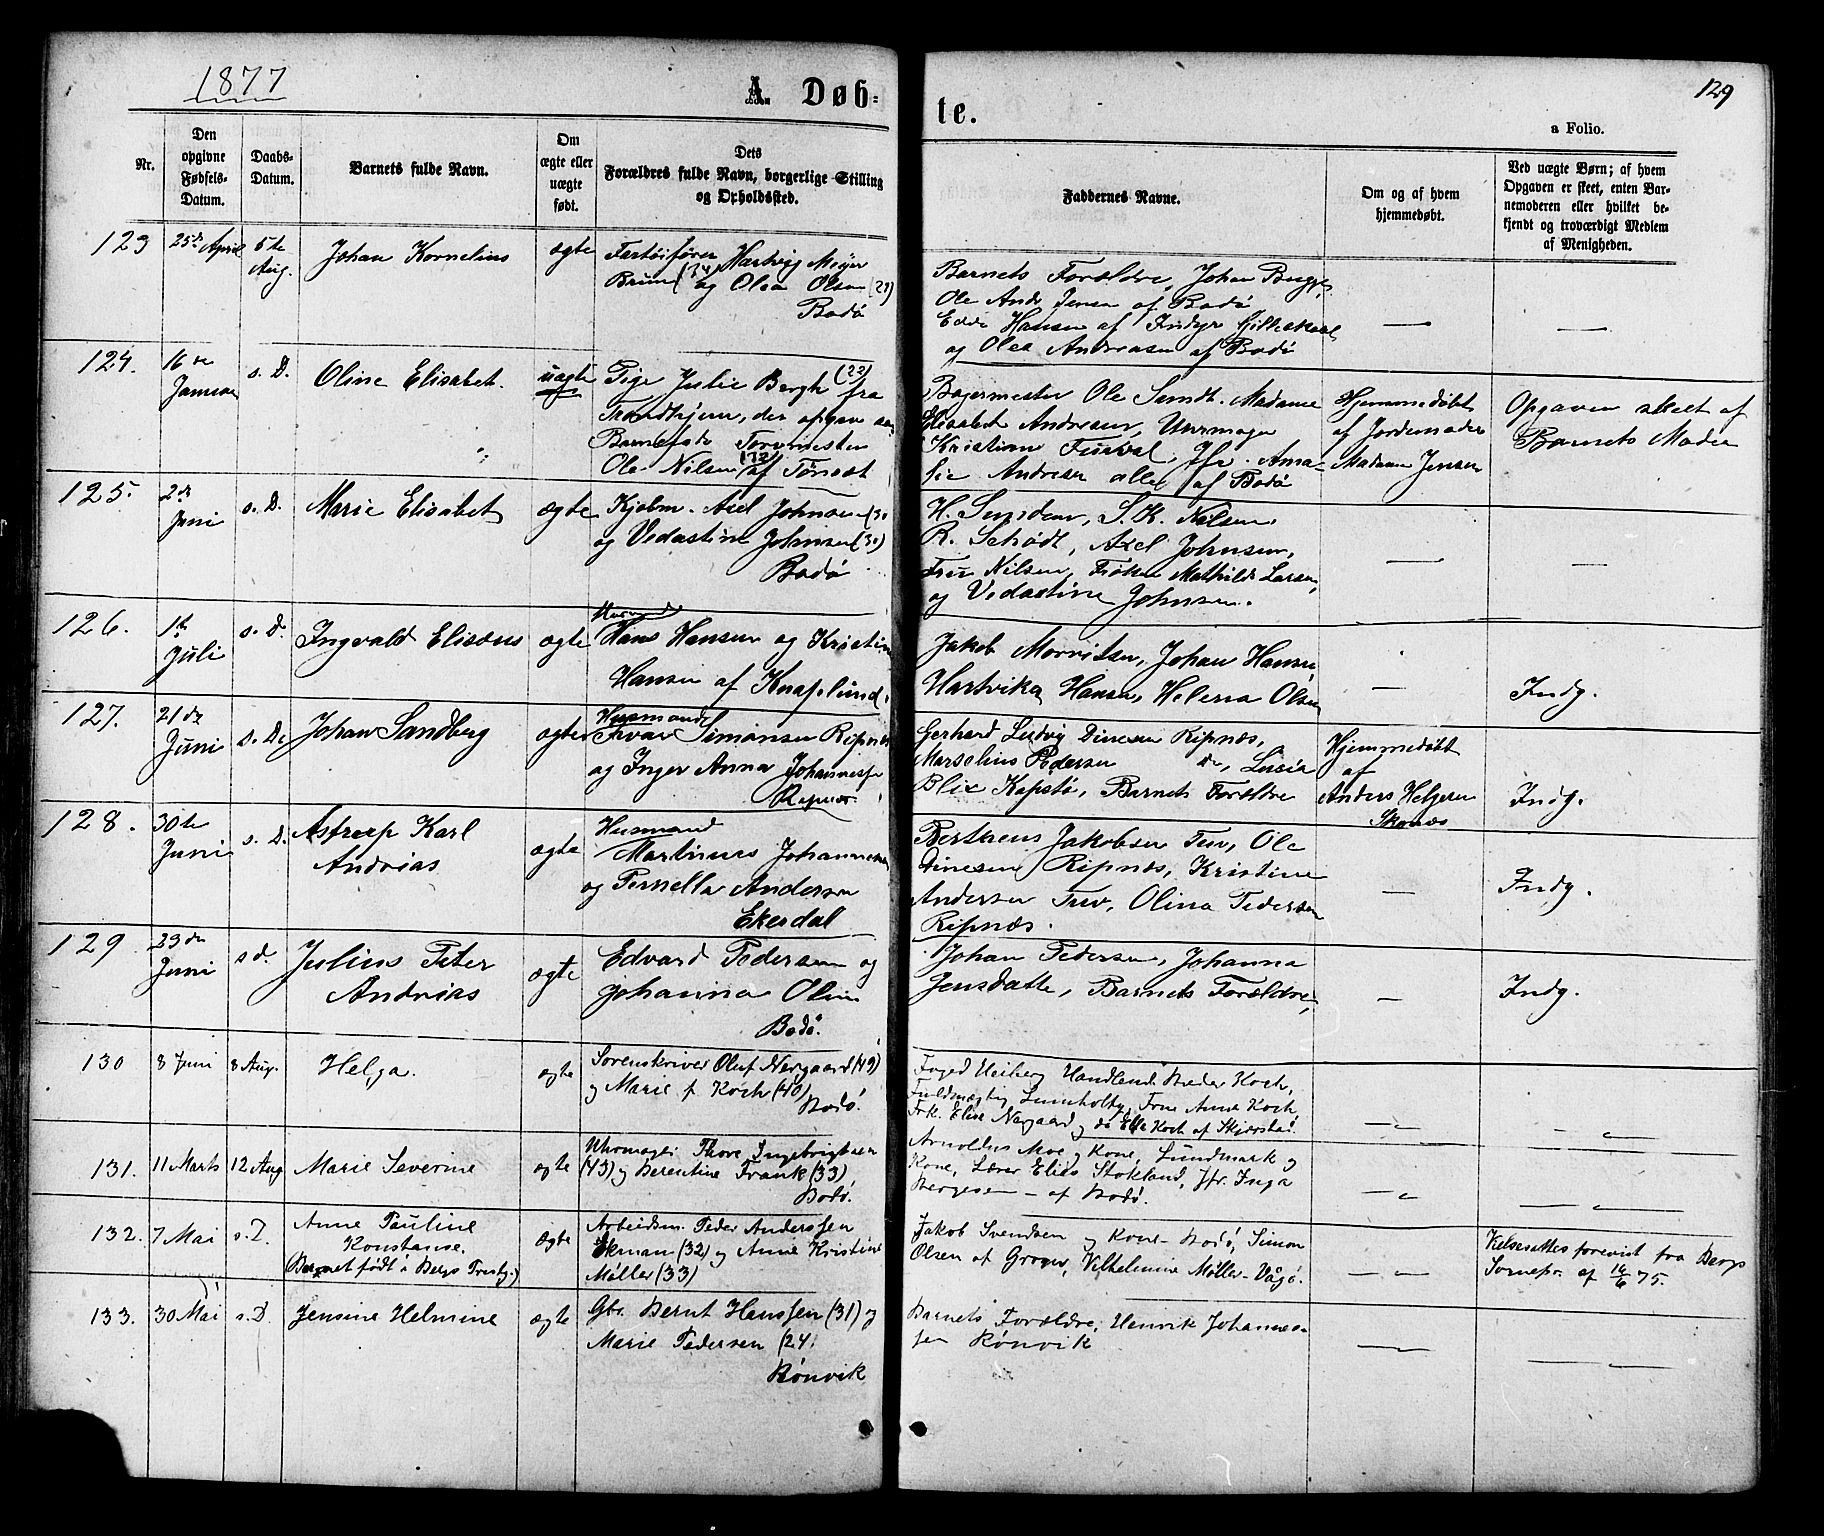 1877
A. Døb=
te.
129
a Folio.
Nr.
Den opgivne Fødsels-Datum.
Daabs-Datum.
Barnets fulde Navn.
Om ægte eller uægte født.
Dets Forældres fulde Navn, borgerlige Stilling og Opholdssted.
Faddernes Navne.
Om og af hvem hjemmedøbt.
Ved uægte Børn; af hvem Opgaven er skeet, enten Barnemoderen eller hvilket bekjendt og troværdigt Medlem af Menigheden.
123
25de April
5te Aug.
Johan Kornelius
ægte
Fartøifører Hartvig Meyer
Bruun (34) og Olea Olsen (29)
Bodø
Barnets Forældre, Johan Bugge,
Ole Andr. Jensen af Bodø
Hansen af Indyr Gildeskaal
og Olea Andreasen af Bodø
—
—
124.
16de Januar
s. D.
Oline Elisabet.
uægte
Pige Julie Bergh (22) fra
Trondhjem, der opgav som
Barnefader
Ole Nilsen (32) af Tønset
Bagermester Ole Sundt. Madame
Elisabet Andresen, Uurmager
Kristian Jfr. Ama-
lie Andresen alle af Bodø
Hjemmedøbt
af Jordemoder
Madam Jensen
Opgaven skeet af
Barnets Moder
125.
2de Juni
s. D.
Marie Elisabet
ægte
Kjøbm. Axel Johnsen (31
og Vedastine Johnsen (30)
Bodø
S. K. Nilsen,
R. Schødt, Axel Johnsen,
Fru Nilsen, Frøken Mathilde Larsen,
og Vedastine Johnsen.
—
—
126.
1te Juli
s. D.
Ingvald Elisæus
ægte
Husmand
Hans Hansen og Kristine
Hansen af Knaplund.
Jakob Morritsen, Johan Hansen
Hartvika Hansen, Helena Olsen
—
Indg.
127.
21de Juni
s. D.
Johan Sandberg
ægte
Husmand
Ivar Simonsen Ripnæs
og Inger Anna Johannesd.
Ripnæs.
Gerhard Ludvig Dinesen Ripnæs,
Marselius Pedersen do, Lusia
Blix Kopstø, Barnets Forældre
Hjemmedøbt
af
Anders Helgesen
Skonæs
Indg.
128.
30te Juni
s. D.
Astrup Karl
Andreas
ægte
Husmand
Martinus Johannesen
og Pernella Andersen
Ekerdal
Bertheus Jakobsen Tuv, Ole
Dinesen Ripnæs, Kristine
Andersen Tuv, Olina Pedersen
Ripnæs.
—
Indg.
129
23de Juni
s. d.
Julius Peter
Andreas
ægte
Edvard Pedersen og
Johanna Olsen
Bodø.
Johan Pedersen, Johanna
Jensdatte, Barnets Forældre,
—
Indg.
130
8 Juni
8 Aug.
Helga.
ægte
Sorenskriver Oluf Nergaard (49)
og Marie f. Koch (40)
Bodø.
Foged Handlende Peder Koch,
Fuldmægtig Lumholtz, Frue Anne Koch,
Frk. Elise Nergaard og do Elle Koch af Skjærstad.
— " —
— " —
131.
11 Marts
12 Aug
Marie Severine
ægte
Uhrmager Thore Ingebrigtsen
(43) og Berentine Frank (33)
Bodø.
Arnoldus Moe og Kone, Lundmark og
Kone, Lærer Elias Stokland, Jfr. Inga
Børgesen - af Bodø.
— " —
— " —
132.
7 Mai
s. D.
Anne Pauline
Konstanse.
(Barnet født i Bergs Prestg.)
ægte
Arbeidsm. Peder Anderssen
Ekman (32) og Anne Kristine
Møller (33)
Jakob Svendsen og Kone - Bodø, Simon
Olsen af Vilhelmine Møller - Vågø.
— " —
Vielsesattest forevist fra Bergs
Sornepr. af 14/6 75.
133.
30 Mai
s. D.
Jensine Helmine
ægte
Gbr. Bernt Hanssen (31) og
Marie Pedersen (24)
Rønvik
Barnets Forældre, Henrik Johannes-
sen Rønvik
— " —
— " —